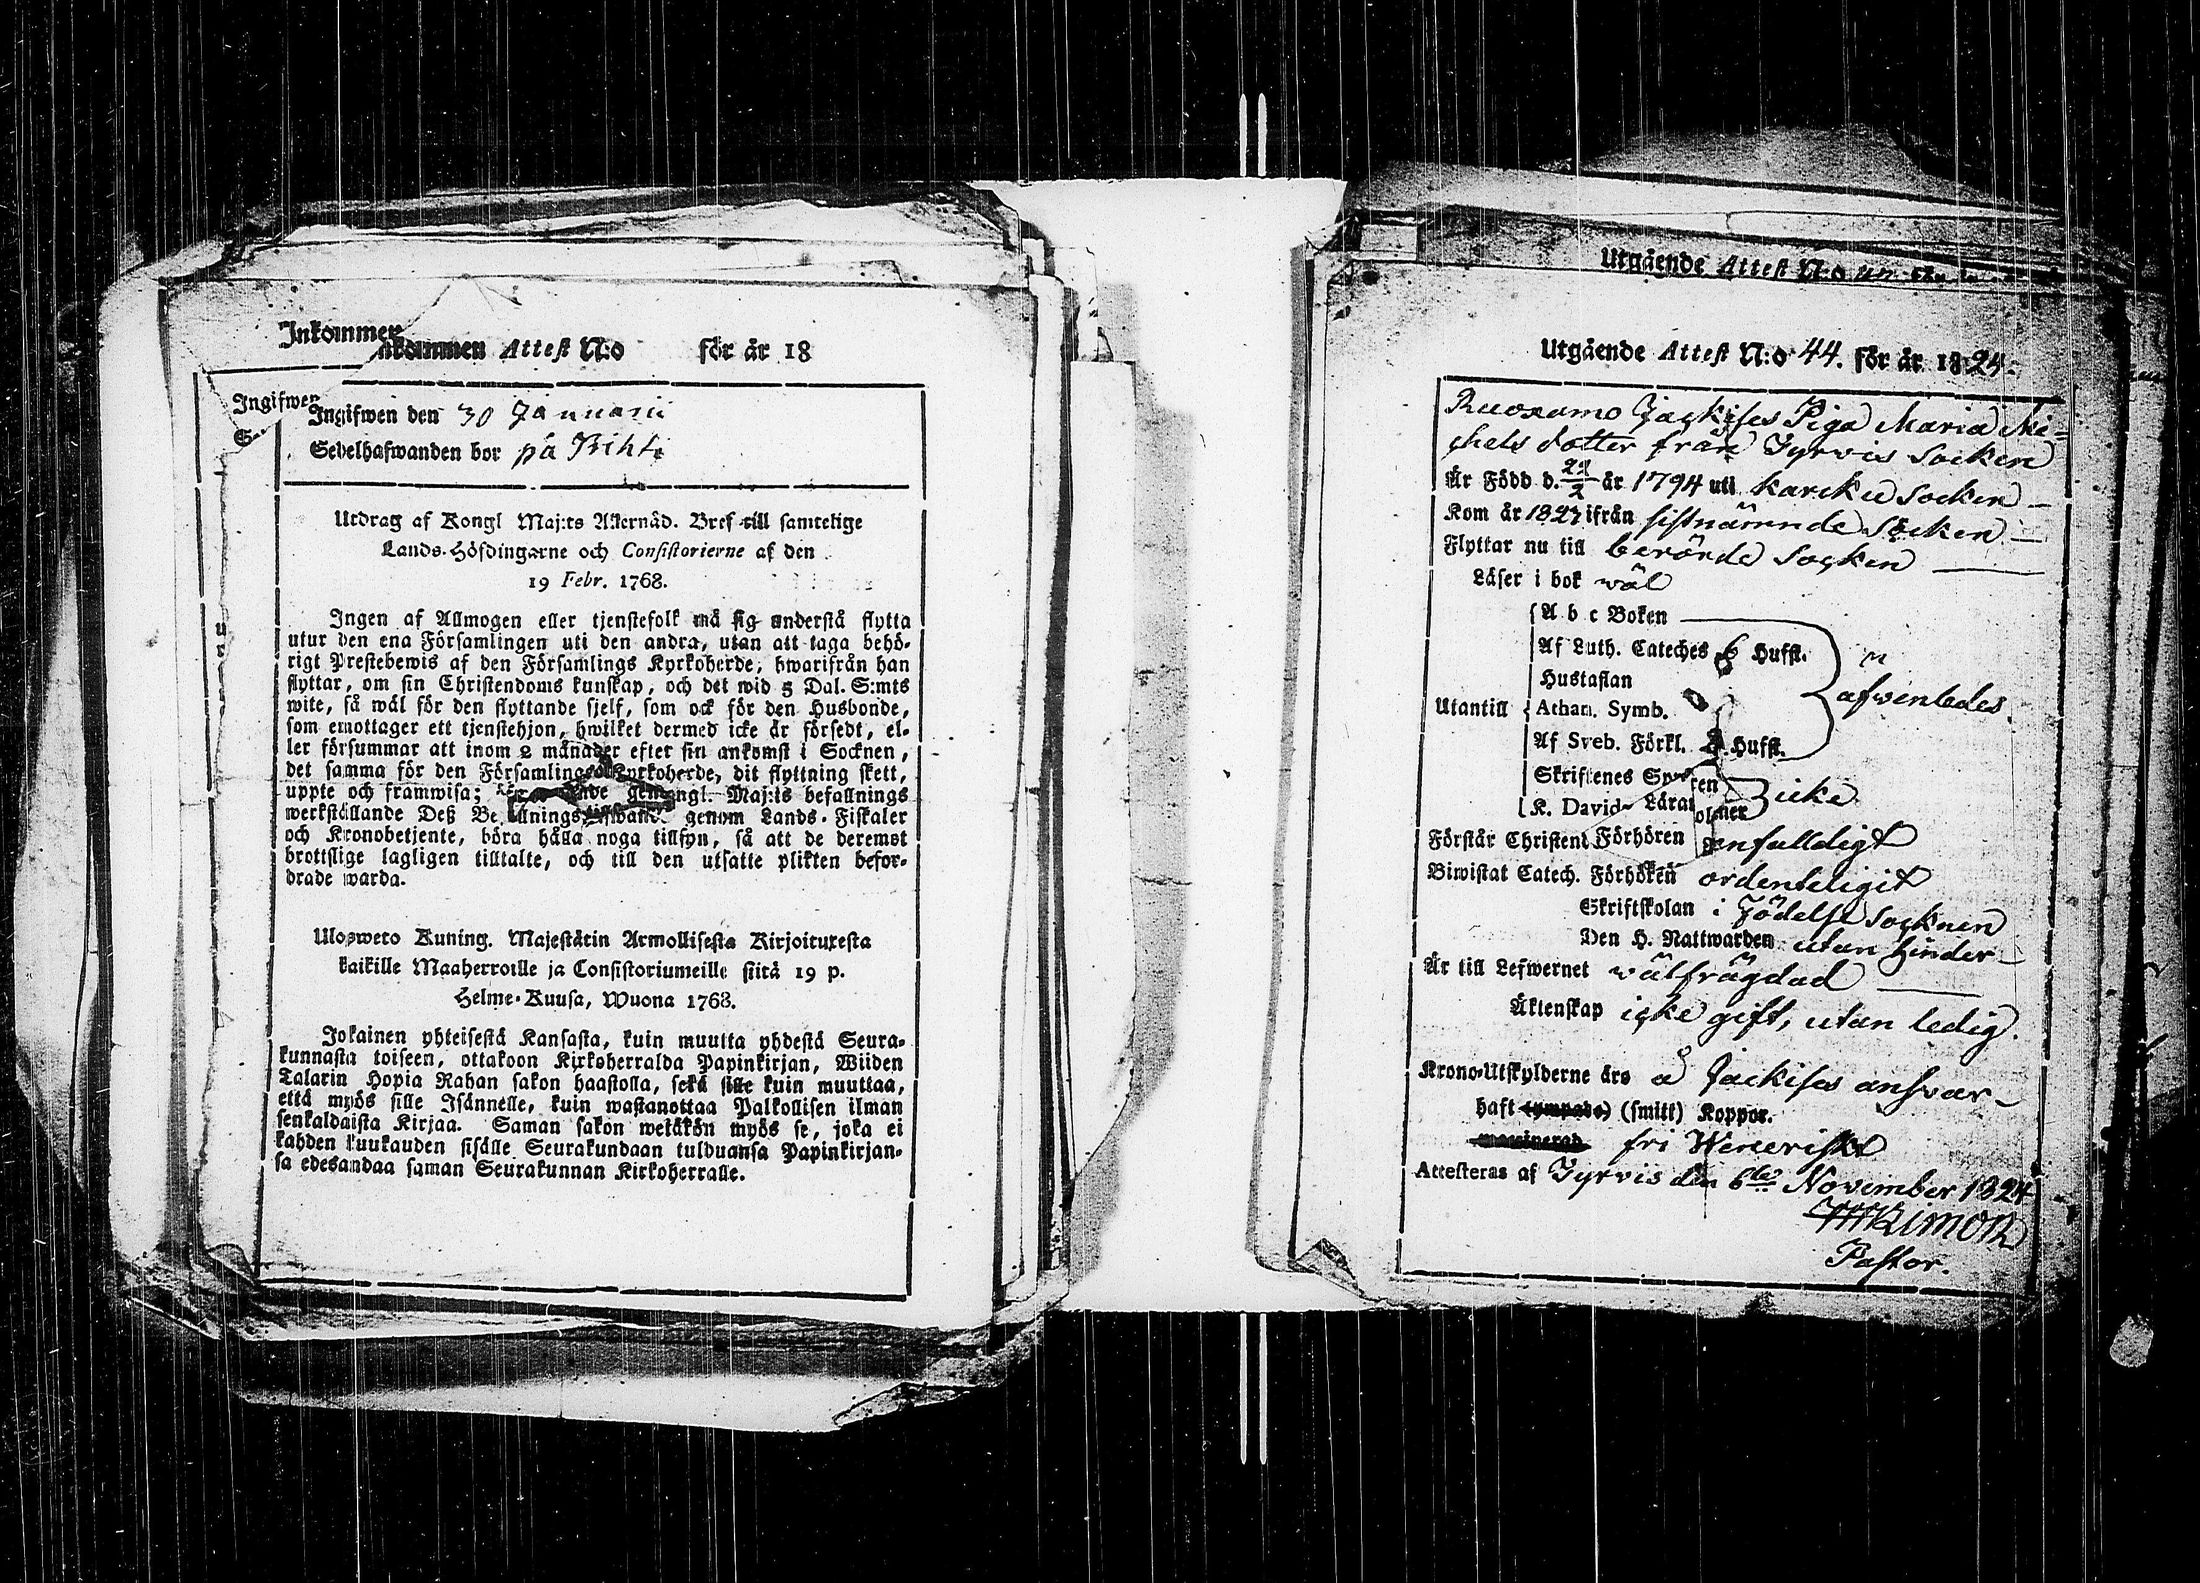 Inkommen
nkommen Attest N:o för år 18
Ingifwen
Ingifwen den 30 Januarii
Sedelhafwanden bor på Rihti
Utdrag af Kongl Maj:ts Allernåd. Bref till samtelige
Lands-Höfdingarne och Consistorierne af den
19 Febr. 1768.
Ingen af Allmogen eller tjenstefolk må sig understå flytta
utur den ena Församlingen uti den andra, utan att taga behö-
rigt Prestebewis af den Församlings Kyrkoherde, hwarifrån han
flyttar, om sin Christendoms kunskap, och det wid 5 Dal. S:mts
wite, så wäl för den flyttande sjelf, som ock för den Husbonde,
som emottager ett tjenstehjon, hwilket dermed icke är försedt, el-
ler försummar att inom 2 månader efter sin ankomst i Socknen,
det samma för den Församlings Kyrkoherde, dit flyttning skett,
uppte och framwisa; ngl. Maj:ts befallnings
werkställande Deß Be genom Lands-Fiskaler
och Kronobetjente, böra hålla noga tillsyn, så att de deremot
brottslige lagligen tilltalte, och till den utsatte plikten befor-
drade warda.
Ulosweto Kuning. Majestätin Armollisesta Kirjoituxesta
kaikille Maaherroille ja Consistoriumeille siitä 19 p.
Helme-Kuusa, Wuona 1768.
Jokainen yhteisestä Kansasta, kuin muutta yhdestä Seura-
kunnasta toiseen, ottakoon Kirkoherralda Papinkirjan, Wiiden
Talarin Hopia Rahan sakon haastolla, sekä sille kuin muuttaa,
että myös sille Isännelle, kuin wastanottaa Palkollisen ilman
senkaldaista Kirjaa. Saman sakon wetäkön myös se, joka ei
kahden kuukauden sisälle Seurakundaan tulduansa Papinkirjan-
sa edesandaa saman Seurakunnan Kirkoherralle.
Utgående Attest N:o
Utgående Attest N:o 44. för år 1824.
Ruoxamo Jackises Piga Maria Mi-
chels dotter från Tyrvis Socken
Är Född d. 21/2 år 1794 uti Karcku Socken
Kom år 1823 ifrån sistnämnde Socken
Flyttar nu till berörde Socken
Läser i bok wäl
A b c Boken
Af Luth. Cateches 6 Hufst.
Hustaflan
Utantill Athan. Symb. afwenledes
Af Sveb. Förkl. Hufst.
Skriftenes
K. David icke
Förstår Christend Förhören enfalldigt
Biwistat Catech. Förhören ordenteligit
Skriftskolan i Födelse Socknen
Den H. Nattwarden utan hinder
Är till Lefwernet wälfrägdad
Äktenskap icke gift, utan ledig.
Krono-Utskylderne äro å Jackises answar
haft (smitt) Koppor.
fri Weneriskt
Attesteras af Tyrvis den 6te November 1824
Pastor.